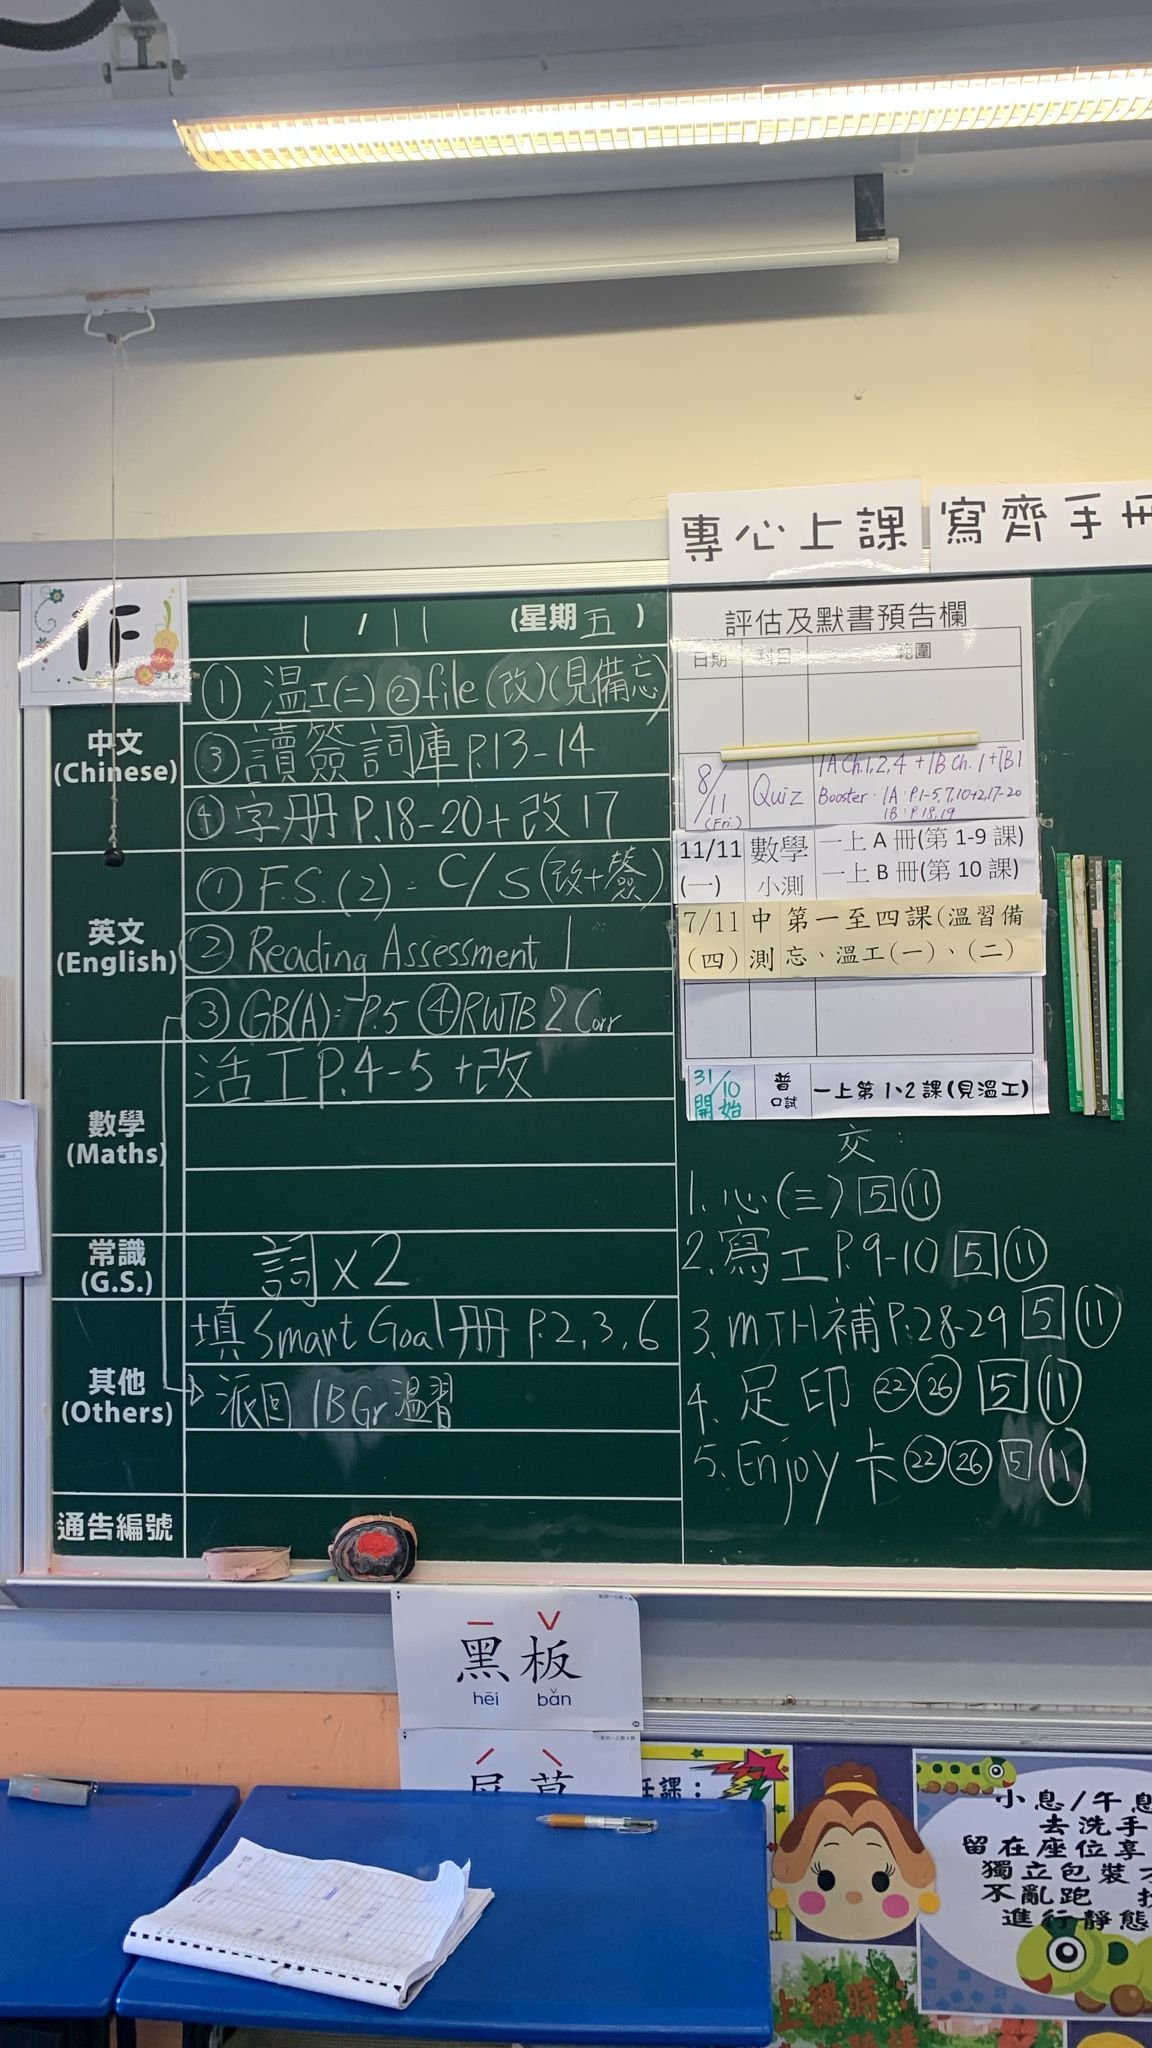 專心上課 寫齊手冊
1F
1 / 11 (星期五)
中文
(Chinese)
① 溫工(二) ② file (改)(見備忘)
③ 讀簽詞庫 P.13-14
④ 字册 P.18-20 + 改 17
英文
(English)
① F.S. (2) = C/S (改+簽)
② Reading Assessment 1
③ GB(A): P.5 ④ RWTB 2 Corr
數學
(Maths)
活工 P.4-5 + 改
常識
(G.S.)
詞 x 2
其他
(Others)
填 Smart Goal 册 P.2,3,6
派回 1B Gr 溫習
通告編號
評估及默書預告欄
日期 科目 範圍
8/11 (Fri.) Quiz 1A Ch.1,2,4 + 1B Ch.1 + 1B1
Booster: 1A: P.1-5,7,10+2,17-20
1B: P.18,19
11/11 數學 一上 A 冊(第 1-9 課)
(一) 小測 一上 B 冊(第 10 課)
7/11 中 第一至四課(溫習備
(四) 測 忘、溫工(一)、(二)
31/10 開始 普 口試 一上第1、2課(見溫工)
交:
1. 心(三) 5 11
2. 寫工 P.9-10 5 11
3. MTH補 P.28-29 5 11
4. 足印 22 26 5 11
5. Enjoy 卡 22 26 5 11
黑板
hēi bǎn
課:
小息/午息
去洗手
留在座位享
獨立包裝
不亂跑
進行靜態
上課時: